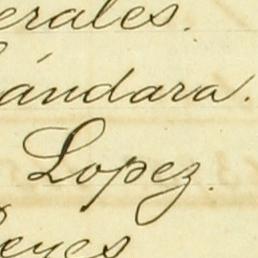 erales.
ándara.
Lopez.
eyes